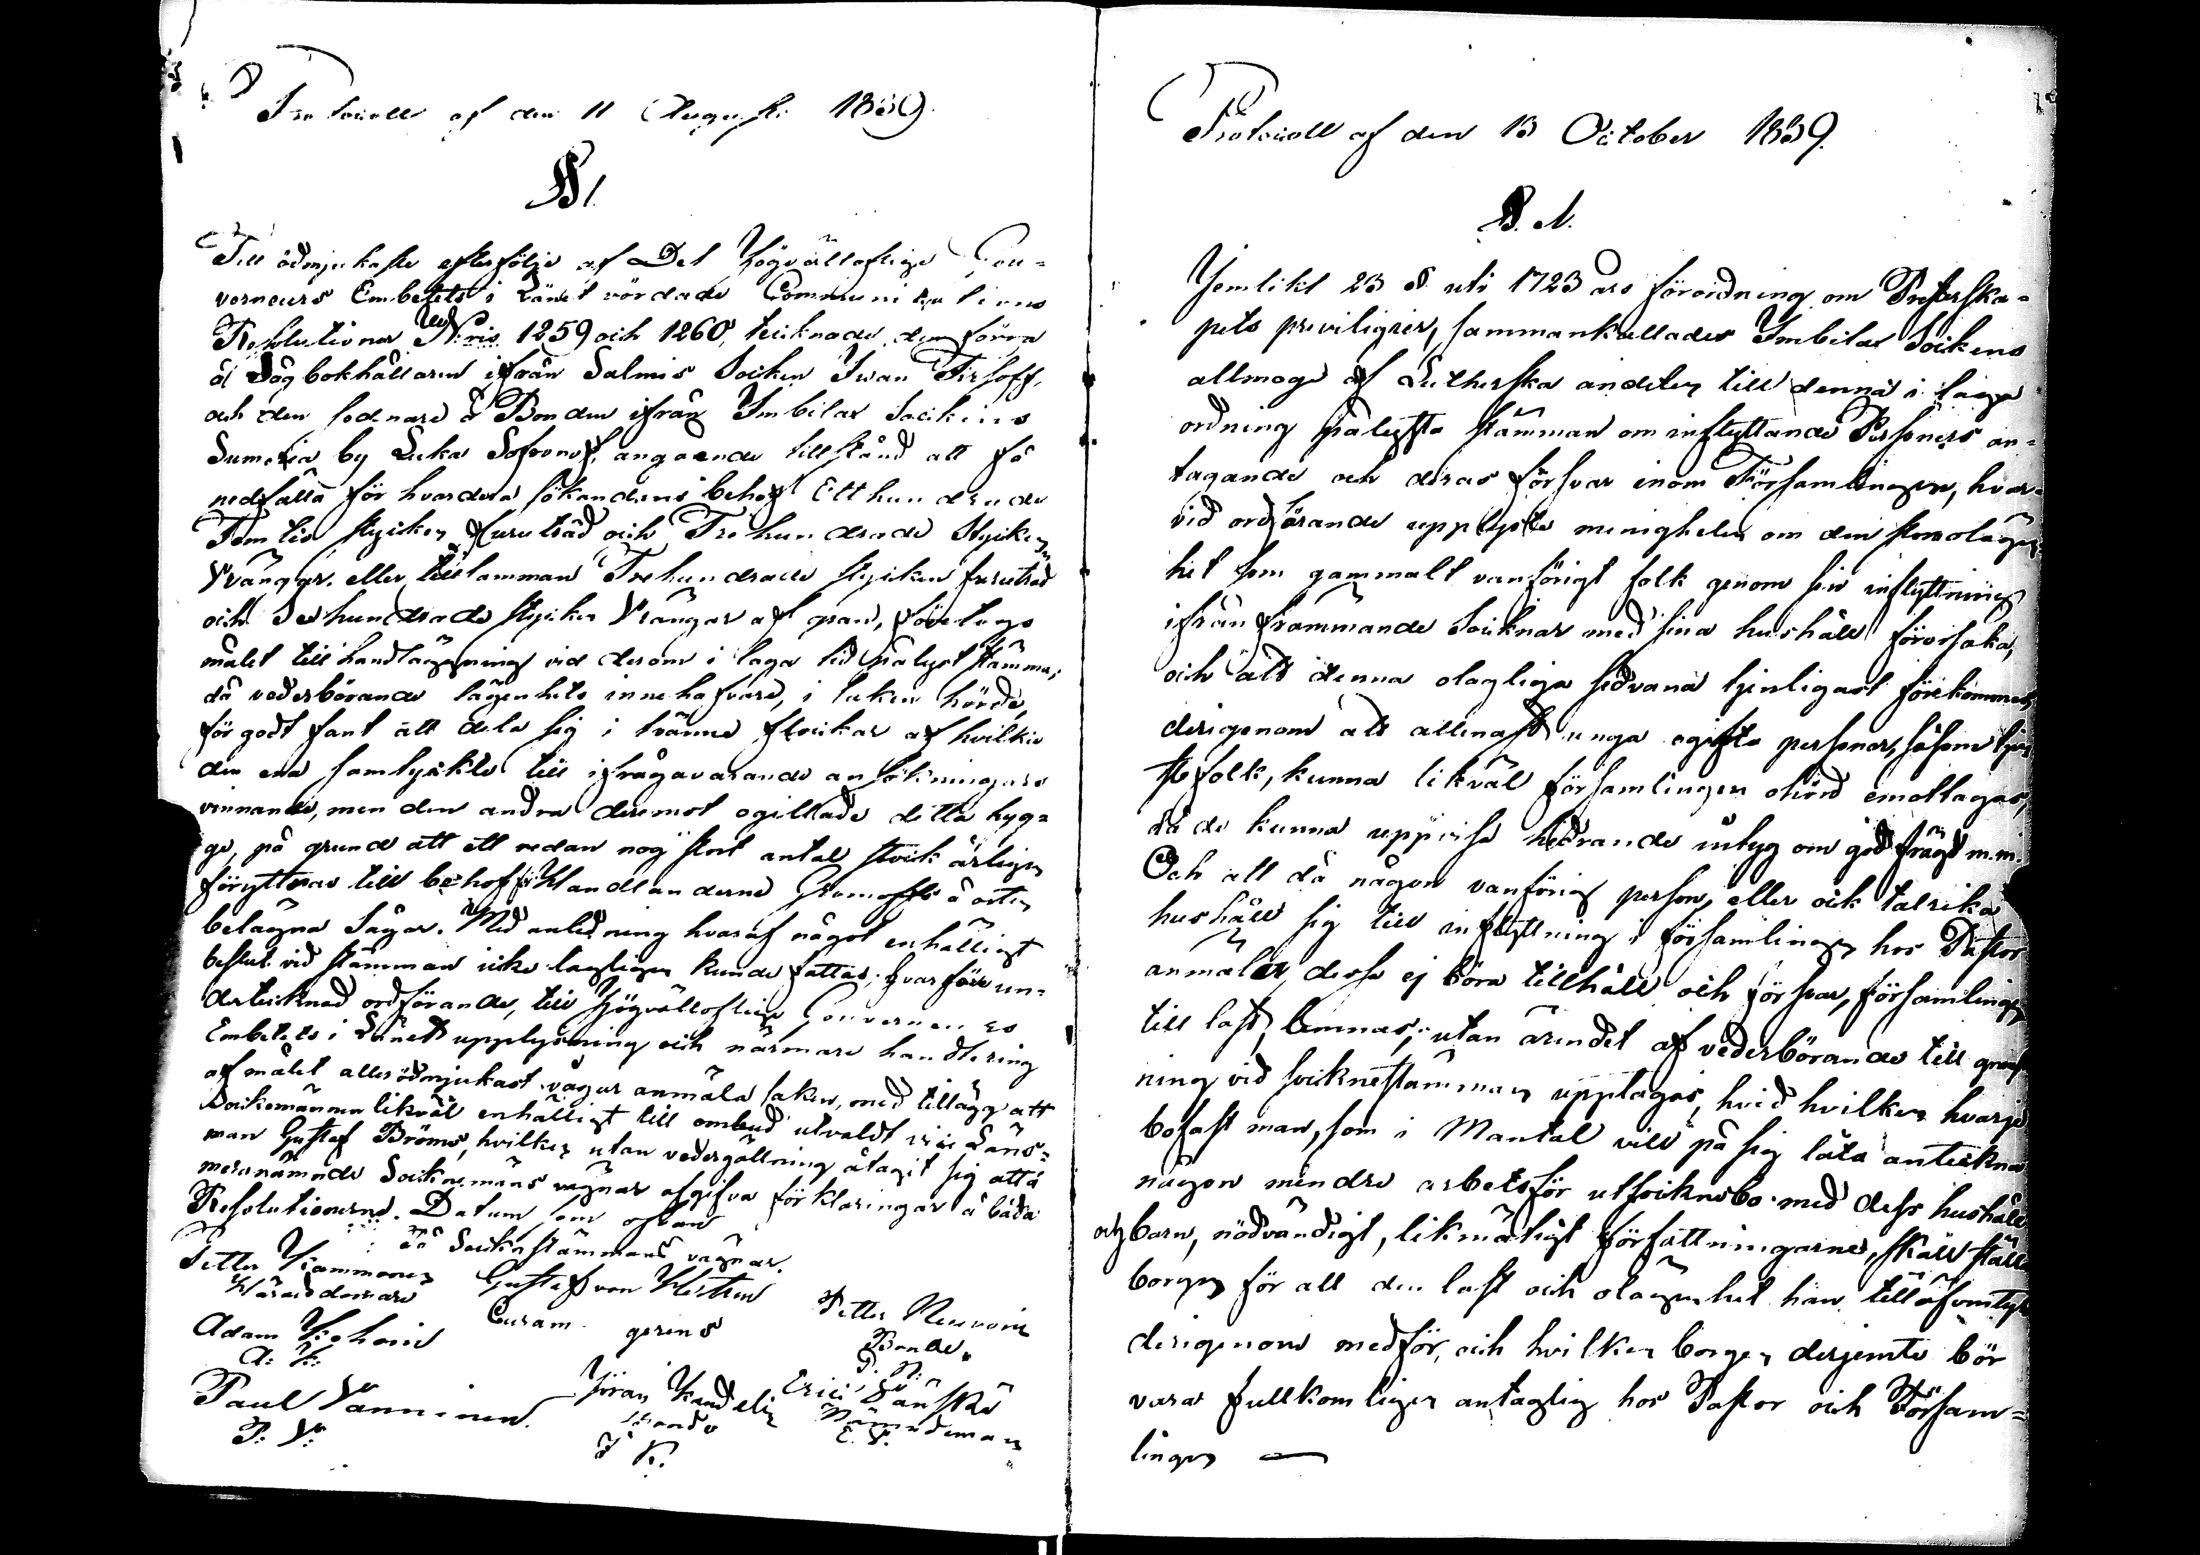 Protocoll af den 11 Augusti 1839.
§ 1.
Till ödmjukaste efterfölje af Det Högvälloflige Gou-
verneurs Embetets i Länet vördade Communications
Resolutioner N:ris 1259 och 1260, tecknade, den förra
å Sågbokhållaren ifrån Salmis Socken Iwan Firsoff,
och den sednare å Bonden ifrån Imbilax Sockens
Sumeria by Luka Sofronoff, angående tillstånd att få
nedfälla för hvardera sökandens behof Ett hundrade
Femtio stycken furuträd och Trehundrade Stycken
Vrängar eller tillsamman Trehundrade stycken furuträd
och Sexhundrade stycken Vrängar af gran, företogs
målet till handläggning vid derom i laga tid pålyst stämma,
då vederbörande lägenhets innehafvare, i saken hörde,
för godt fant att dela sig i tvänne flockar af hvilka
den ena samtyckte till ifrågavarande ansökningars
vinnande, men den andra deremot ogillade detta hyg-
ge, på grund att ett redan nog stort antal stock årligen
föryttras till behof för Handlanderne Gromoffs å orten
belägna Sågar. Med anledning hvaraf något enhälligt
beslut vid stämman icke lagligen kunde fattas; hvarföre un-
dertecknad ordförande, till Högvälloflige Gouverneurs
Embetets i Länet upplysning och närmare handtering
af målet allerödmjukast vågar anmäla saken, med tillägg att
Sockemännen likväl enhälligt till ombud utvaldt vice Läns-
man Gustaf Bröms, hvilken utan vedergällning åtagit sig att å
meranämnde Socknemäns vägnar afgifva förklaringar å båda
Resolutionerne. Datum som ofvan
På Sockenstämmans vägnar.
Petter Kammonen Gustaf von Hertzen Petter Neuvoin
Häradsdomare Curam gerens Bonde
Adam Kohoin P. N.
A: K: Jöran Kandelin Eric Länskä
Paul Vänninen. Bonde Nämndeman
P: V: J K. E. L.
Protocoll af den 13 October 1839.
§. 1.
Jemlikt 23 § uti 1723 års förordning om Presterska-
pets previligier, sammankallades Imbilax Sockens
allmoge af Lutherska andelen till denna i laga
ordning pålysta stämman om inflyttande Personers an-
tagande och deras försvar inom Församlingen, hvar-
vid ordförande upplyste menigheten om den stora olägen-
het som gammalt vanförigt folk genom sin inflyttning
ifrån främmande Socknar med sina hushåll förorsaka,
och att denna olagliga sedvana tjenligast förekommes
derigenom att allenast unga ogifta personer, såsom tjen-
stefolk, kunna likväl församlingen ohörd emottagas,
då de kunna uppvisa hedrande intyg om god frägd m.m.
Och att då någon vanförig person, eller ock talrika
hushåll sig till inflyttning i församlingen hos Pastor
anmäler, desse ej böra tillhåll och försvar, församlingen
till last, lemnas; utan ärendet af vederbörande till gransk-
ning vid socknestämman upptages, hvid hvilken hvarje
bofast man, som i Mantal vill på sig låta anteckna
någon mindre arbetsför utsocknebo med dess hushåll
och barn, nödvändigt, likmätigt författningarne, skall ställa
borgen för all den last och olägenhet han
derigenom medför, och hvilken borgen derjemte bör
vara fullkomligen antaglig hos Pastor och Försam-
lingen